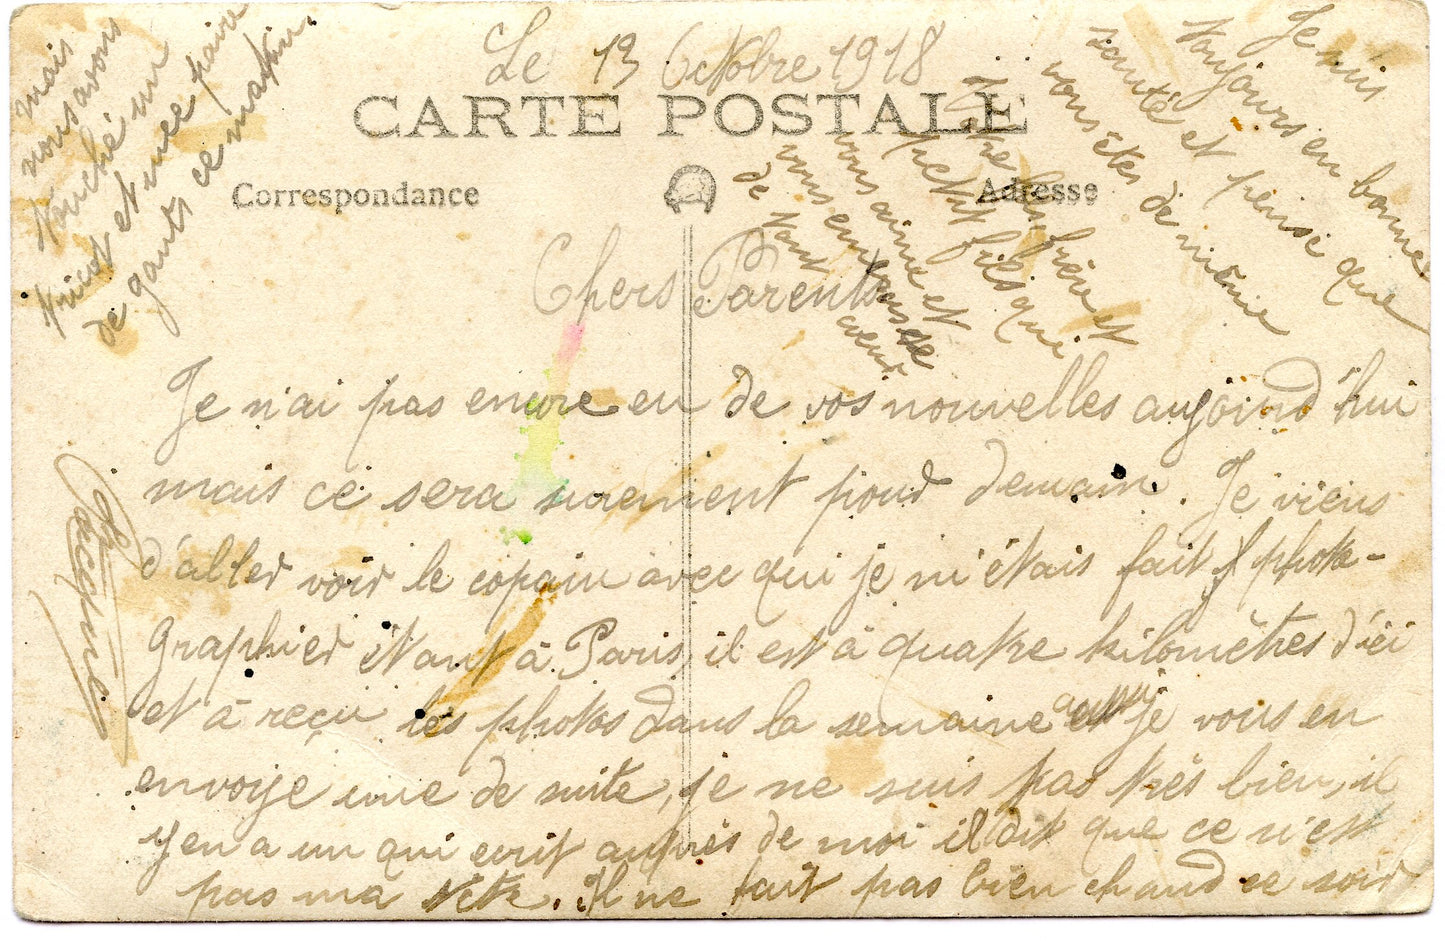 Le 13 Octobre 1918
CARTE POSTALE
Correspondance
Adresse
Chers Parents
Je n'ai pas encore eu de vos nouvelles aujourd'hui
mais ce sera surement pour demain. Je viens
d'aller voir le copain avec qui je m'étais fait photo-
graphier étant à Paris, il est à quatre kilomètres d'ici
et à reçu les photos dans la semaine aussi je vous en
envoye une de suite, je ne suis pas très bien, il
y en a un qui ecrit auprès de moi il dit que ce n'est
pas ma tête. Il ne fait pas bien chaud ce soir
mais
nous avons
touché un
tricot et une paire
de gants ce matin.
Je suis
toujours en bonne
santé et pense que
vous êtes de même
Votre frère et
petit fils qui
vous aime et
vous embrasse
de tout cœur